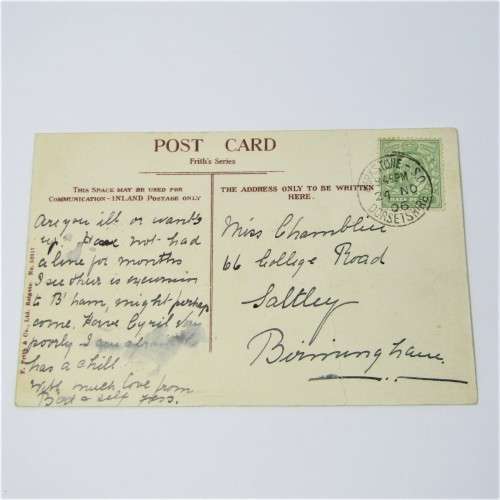 POST CARD
Frith's Series
THIS SPACE MAY BE USED FOR
COMMUNICATION - INLAND POSTAGE ONLY
THE ADDRESS ONLY TO BE WRITTEN
HERE.
Are you ill or
up. Have not had
a line for months
I see there is excursion
to B'ham, might perhaps
come. Have Cyril
poorly I am afraid
has a chill.
With much love from
& self
Miss
66 College Road
Saltley
Birmingham
F. Frith & Co., Ltd. Reigate. No.
4.45PM
NO
06
DORSETSHIRE